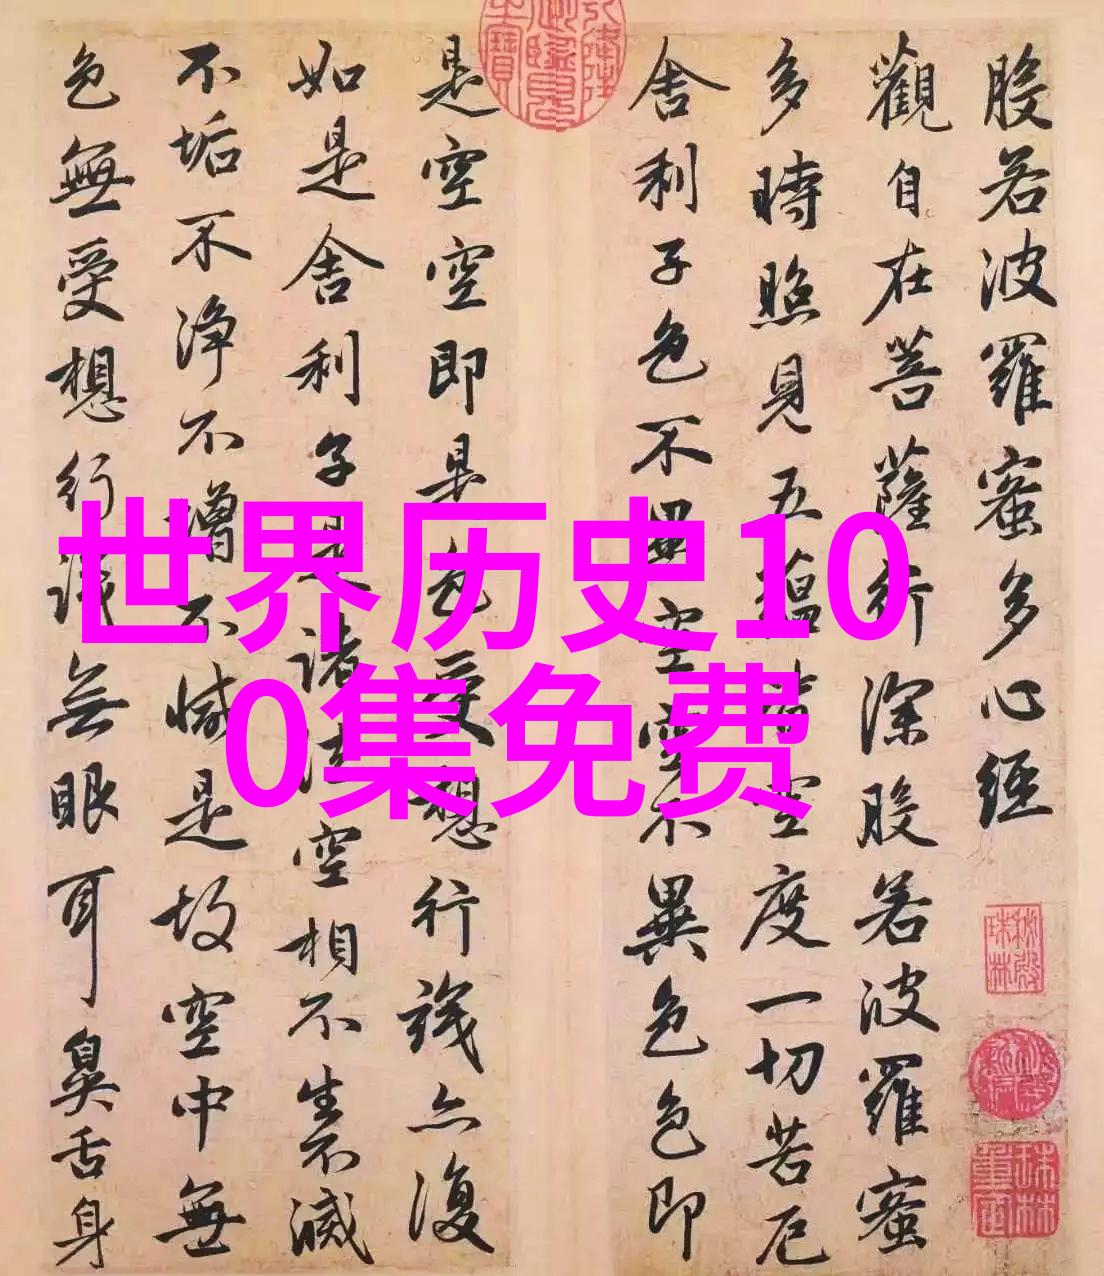 般若波羅蜜多心經
觀自在菩薩行深般若波羅蜜
多時照見五蘊皆空度一切苦厄
舍利子色不異空空不異色色即
是空空即是色受想行識亦復
如是舍利子是諸法空相不生不滅
不垢不淨不增不減是故空中無
色無受想行識无眼耳鼻舌身
世界历史10
0集免费
秘殿
珠林
珠林
重定